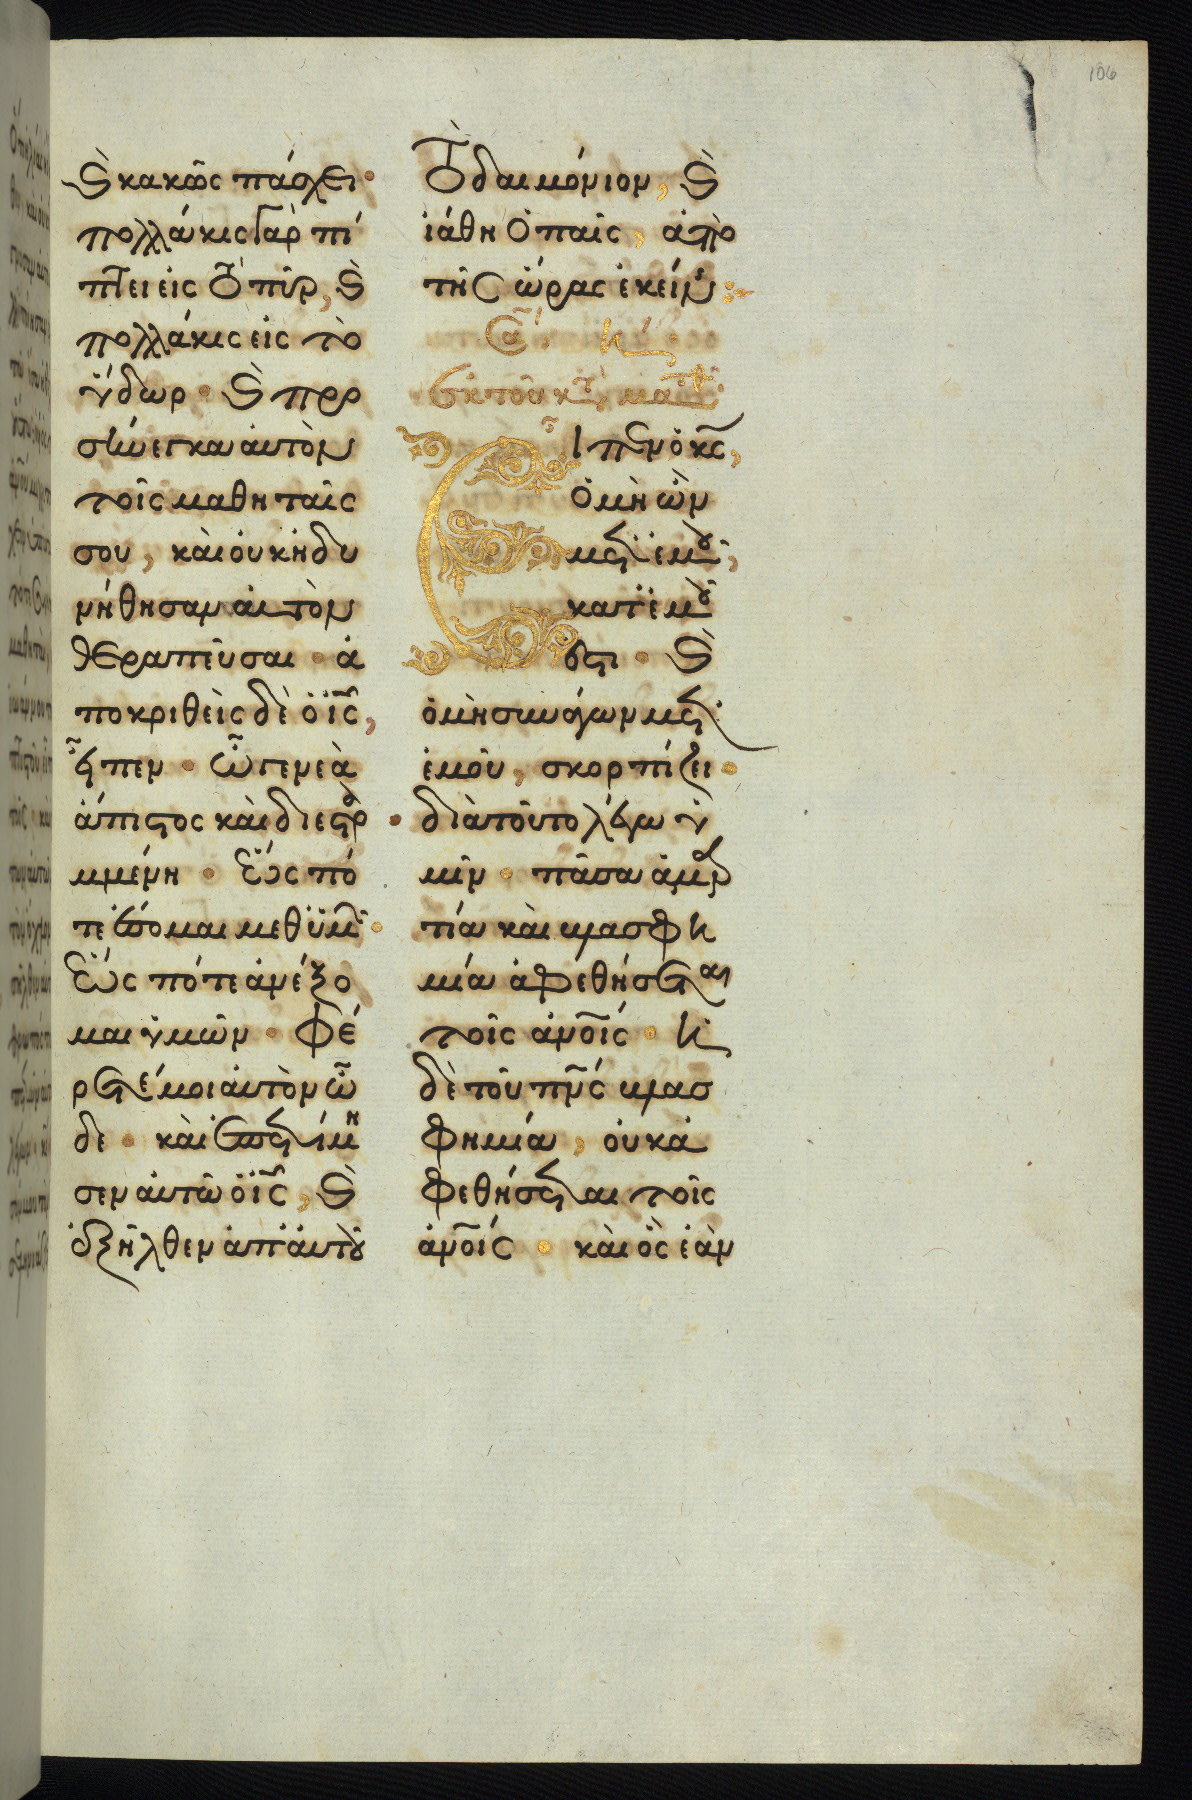 106
Ϗ̀ κακῶς πάσχει·
πολλάκις γὰρ πί
πτει εἰς τὸ πῦρ, Ϗ̀
πολλάκις εἰς τὸ
ὕδωρ · Ϗ̀ προ
σήνεγκα αὐτὸν
τοῖς μαθηταῖς
σου, καὶ οὐκ ἠδυ
νήθησαν αὐτὸν
θεραπεῦσαι · ἀ
ποκριθεὶς δὲ ὁ ἰς̅,
εἶπεν · ὦ γενεὰ
ἄπιστος καὶ διεστρα
μμένη · ἕως πό
τε ἔσομαι μεθ' ὑμῶν·
ἕως πότε ἀνέξο
μαι ὑμῶν · φέ
ρετέ μοι αὐτὸν ὧ
δε · καὶ ἐπετίμη
σεν αὐτῶ ὁ ἰς̅, Ϗ̀
ἐξῆλθεν ἀπ' αὐτοῦ
τὸ δαιμόνιον, Ϗ̀
ἰάθη ὁ παῖς, ἀπὸ
τῆς ὥρας ἐκείνης:
ἐκ τοῦ κατὰ ματθ
Εἶπεν ὁ κς̅,
ὁ μὴ ὢν
μετ' ἐμοῦ,
κατ' ἐμοῦ
ἐστι · Ϗ̀
ὁ μὴ συνάγων μετ'
ἐμοῦ, σκορπίζει·
διὰ τοῦτο λέγω ὑ
μῖν · πᾶσα ἁμαρ
τία καὶ βλασφη
μία ἀφεθήσεται
τοῖς ἀνοις̅ · ἡ
δὲ τοῦ πνς̅ βλασ
φημία, οὐκ ἀ
φεθήσεται τοῖς
ἀνοις̅ · καὶ ὃς ἐὰν